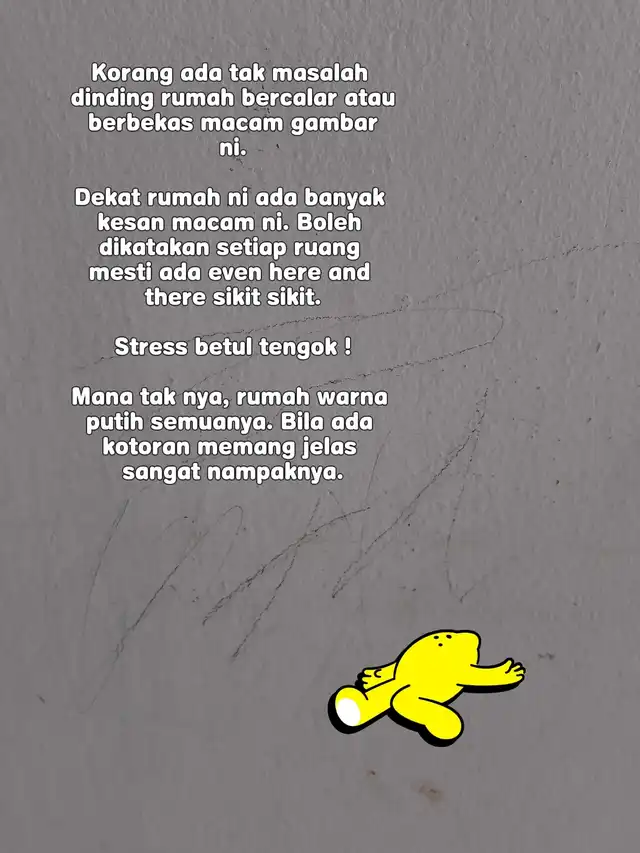 Korang ada tak masalah
dinding rumah bercalar atau
berbekas macam gambar
ni.
Dekat rumah ni ada banyak
kesan macam ni. Boleh
dikatakan setiap ruang
mesti ada even here and
there sikit sikit.
Stress betul tengok !
Mana tak nya, rumah warna
putih semuanya. Bila ada
kotoran memang jelas
sangat nampaknya.